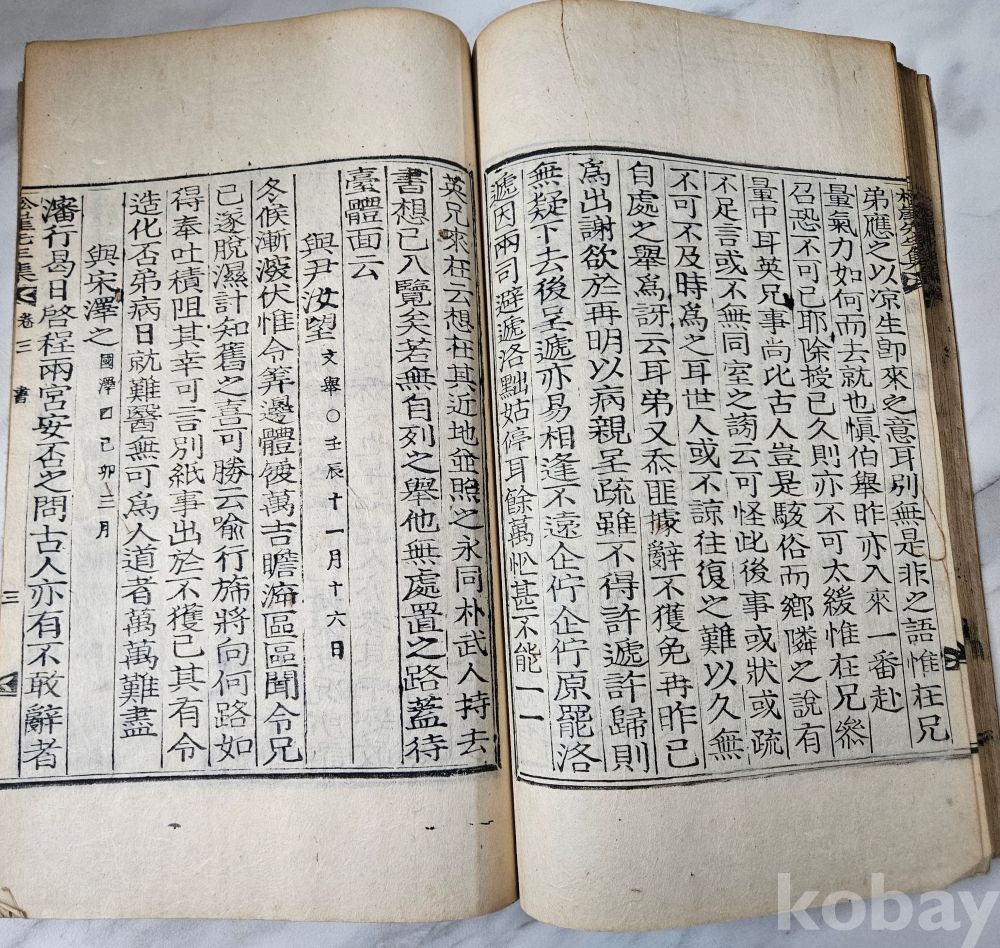 弟應之以凉生卽來之意耳別無是非之語惟在兄
量氣力如何而去就也愼伯舉昨亦入來一番赴
召恐不可已耶除授已久則亦不可太緩惟在兄叅
量中耳英兄事尚比古人豈是駭俗而鄉隣之說有
不足言或不無同室之謗云可怪此後事或狀或疏
不可不及時爲之耳世人或不諒往復之難以久無
自處之舉爲訝云耳弟又忝匪據辭不獲免再昨已
爲出謝欲於再明以病親呈疏雖不得許遞許歸則
無疑下去後呈遞亦易相逢不遠企佇企佇原罷洛
遞因兩司避遞洛黜姑停耳餘萬忩甚不能一一
英兄來在云想在其近地並照之永同朴武人持去
書想已入覽矣若無自列之舉他無處置之路蓋待
臺體面云
與尹汝望 文舉○壬辰十一月十六日
冬候漸深伏惟令筭邊體候萬吉瞻溯區區聞令兄
已遂脫濕計知舊之喜可勝云喩行旆將向何路如
得奉吐積阻其幸可言別紙事出於不獲已其有令
造化否弟病日就難醫無可爲人道者萬萬難盡
與宋澤之 國澤 己卯三月
瀋行曷日啓程兩宮安否之問古人亦有不敢辭者
卷三 書
三
kobay